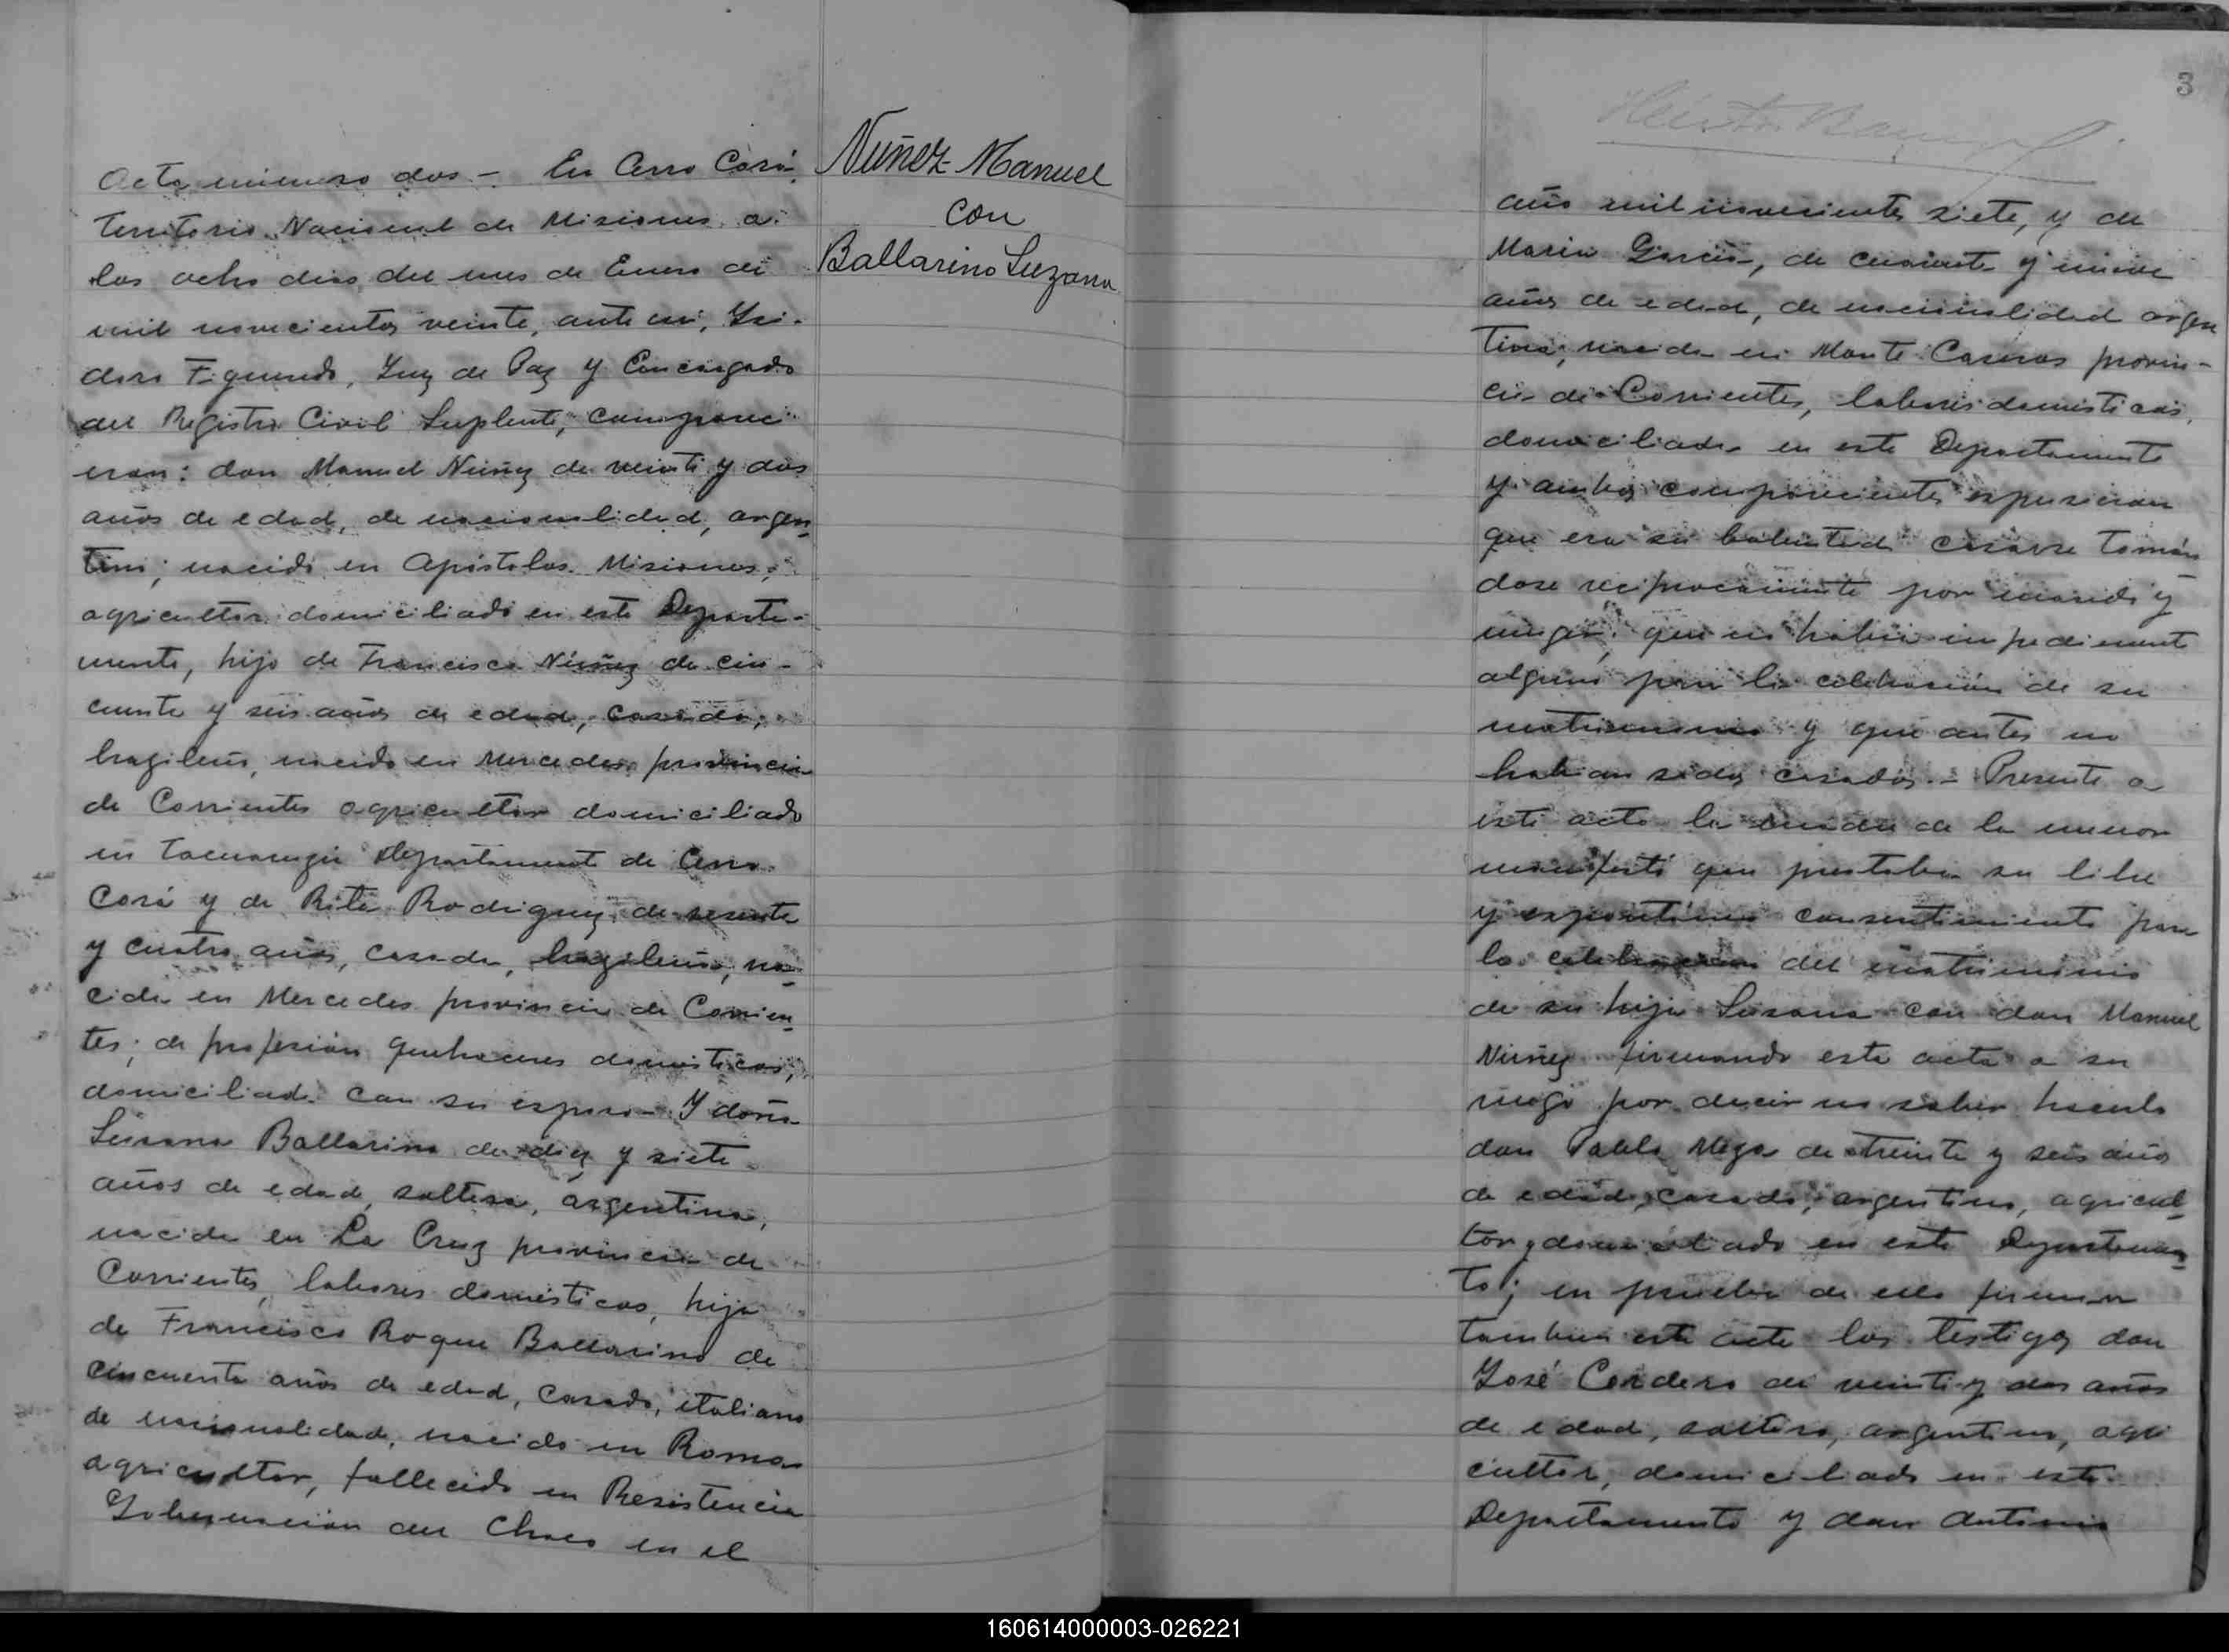 Acta número dos – En Cerro Corá,
Territorio Nacional de Misiones a
los ocho dias del mes de Enero de
mil novecientos veinte, ante mi, Isi-
doro Figueredo, Juez de Paz y Encargado
del Registro Civil Suplente, compareci-
eron: don Manuel Nuñez de veinti y dos
años de edad, de nacionalidad, argen
tino; nacido en Apóstoles Misiones,
agricultor domiciliado en este Departa-
mento, hijo de Francisco Núñez de cin-
cuenta y seis años de edad, casado,
brazileño, nacido en Mercedes provincia
de Corrientes agricultor domiciliado
en Tacuaruzú Departamento de Cerro
Corá y de Rita Rodriguez de sesenta
y cuatro años, casada, brazileña, na-
cida en Mercedes provincia de Corrien
tes; de profesión quehaceres domésticos,
domiciliada con su esposo – Y doña
Susana Ballarino de diez y siete
años de edad, soltera, argentina,
nacida en La Cruz provincia de
Corrientes, labores domésticas, hija
de Francisco Roque Ballarino de
cincuenta años de edad, casado, italiano
de nacionalidad, nacido en Roma
agricultor, fallecido en Resistencia
Gobernación del Chaco en el
Nuñez Manuel
con
Ballarino Suzana
3
año mil novecientos siete, y de
Maria Garcia, de cuarenta y nueve
años de edad, de nacionalidad argen
tina, nacida en Monte Caseros provin-
cia de Corrientes, labores domésticas,
domiciliada en este Departamento
y ambos comparecientes expusieron
que era su boluntad casarse tomán
dose reciprocamente por marido y
muger, que no habia impedimento
alguno para la celebración de su
matrimonio y que antes no
habian sidos casados. – Presente a
este acto la madre de la menor
manifestó que prestaba su libre
y espontáneo consentimiento para
la celebracion del matrimonio
de su hija Susana con don Manuel
Nuñez firmando esta acta a su
ruego por decir no saber hacerlo
don Pablo Meza de treinta y seis años
de edad, casado, argentino, agricul
tor, domiciliado en este Departamen
to; en prueba de ello firman
tambien este acta los testigos don
José Cordero de veinti y dos años
de edad, soltero, argentino, agri
cultor, domiciliado en este
Departamento y don Antonio
160614000003-026221